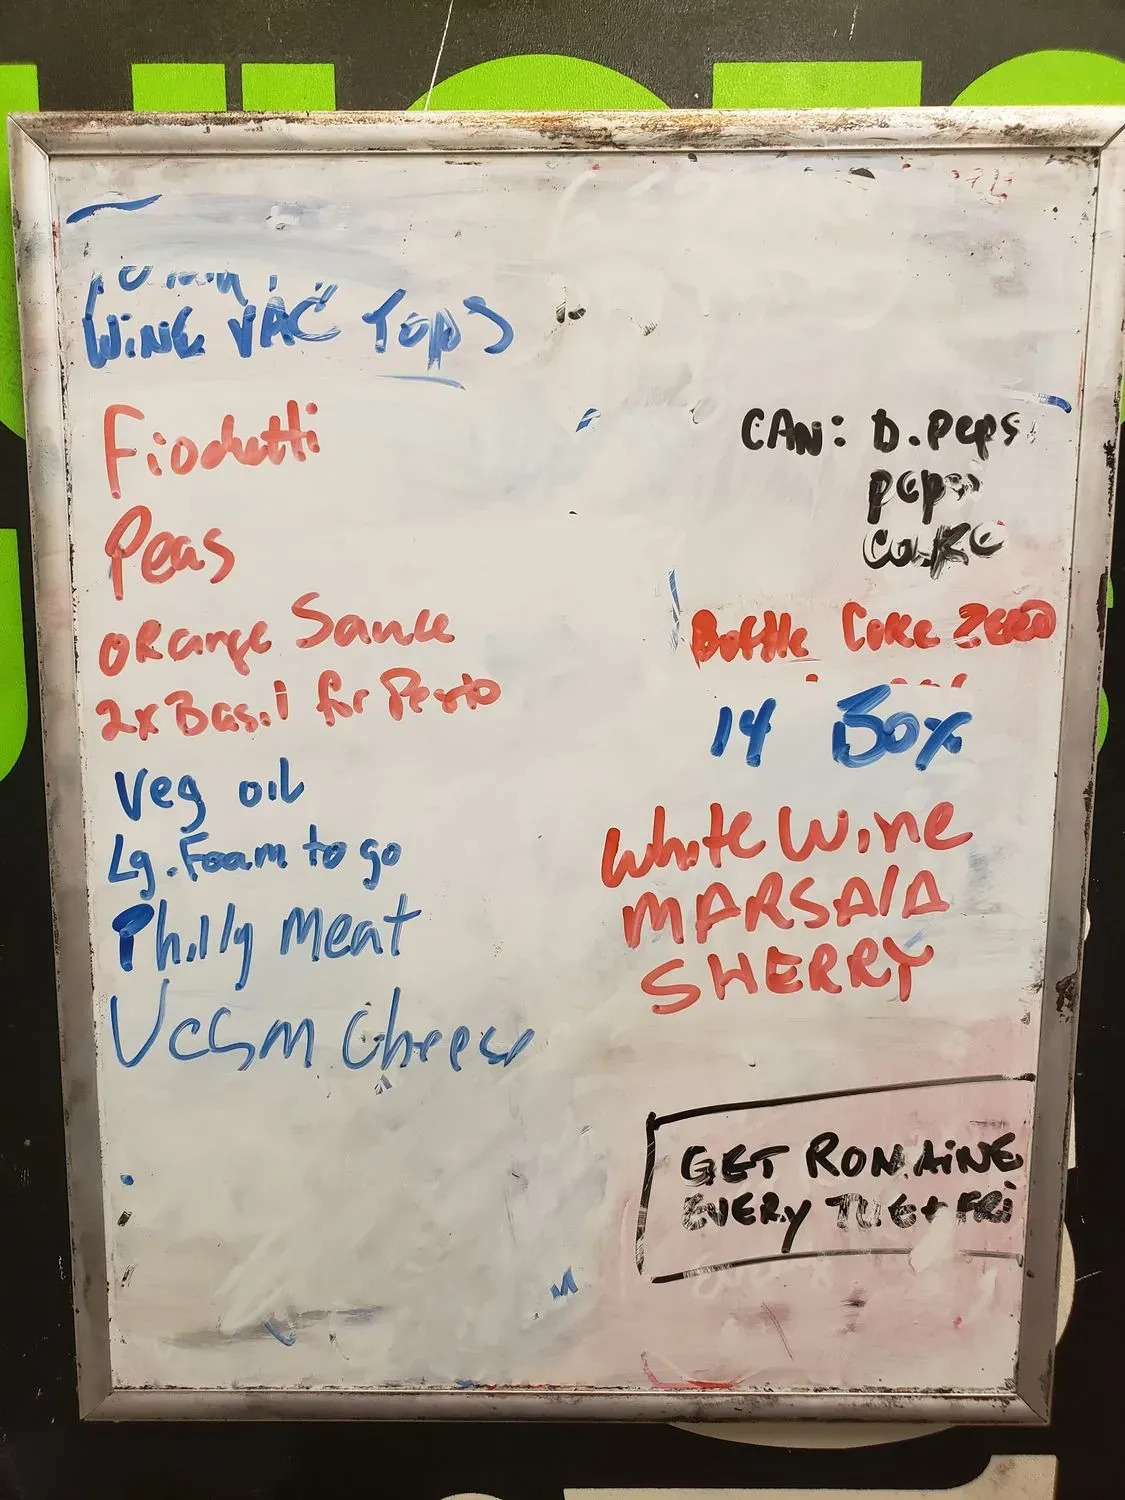 WiNE VAC TopS
Fiodutti
Peas
ORange Sauce
2x Basil for Pesto
Veg oil
Lg. Foam to go
Philly Meat
Cheese
CAN: D. Peps
Peps
CoKe
Bottle Coke ZERO
14 Box
White Wine
MARSAlA
SHERRY
GET ROMAiNE
EVERY TUE + FRi